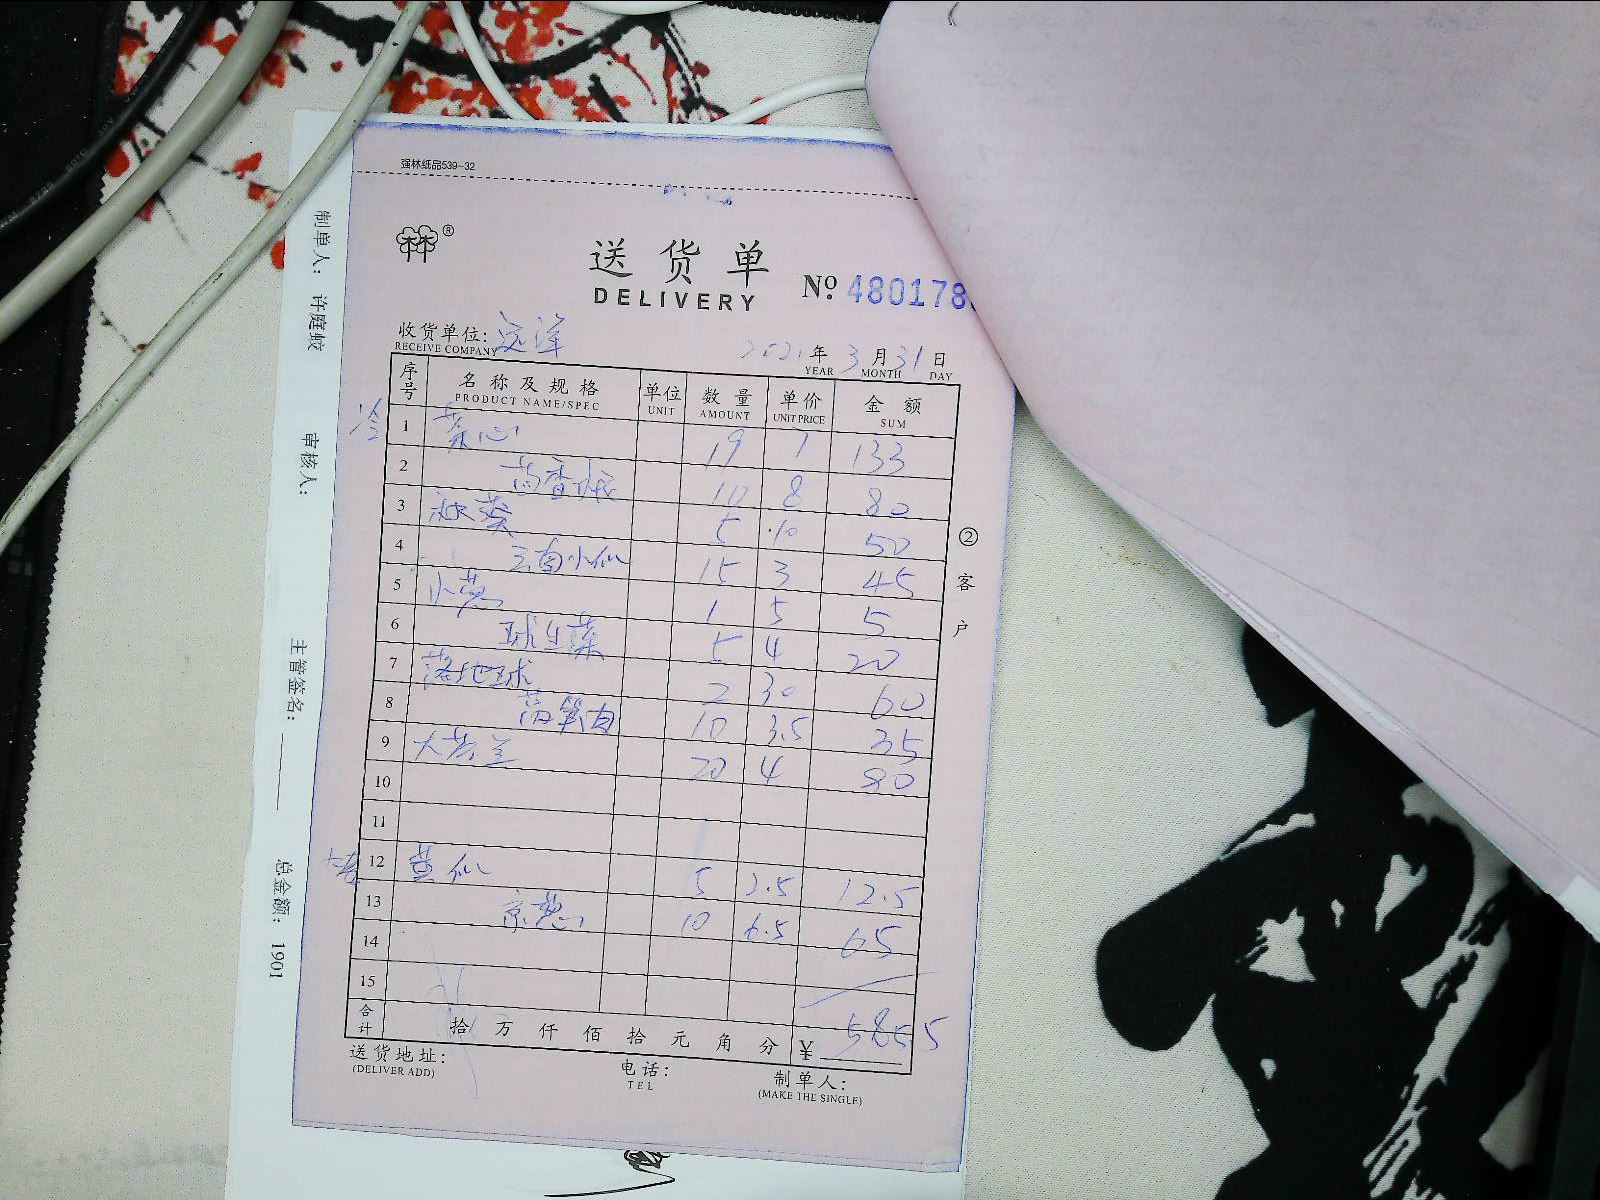 强林纸品539-32
送货单
DELIVERY
№ 480178
收货单位: 远洋
RECEIVE COMPANY
2021年 3月 31日
YEAR MONTH DAY
序号 名称及规格 单位 数量 单价 金额
PRODUCT NAME/SPEC UNIT AMOUNT UNIT PRICE SUM
1 菜心 19 7 133
2 茴香 10 8 80
3 秋葵 5 10 50
4 云南小 15 3 45
5 小葱 1 5 5
6 球生菜 5 4 20
7 落地球 2 30 60
8 莴笋肉 10 3.5 35
9 大芥兰 20 4 80
10
11
12 5 2.5 12.5
13 京葱 10 6.5 65
14
15
合计 拾万仟佰拾元角分 ¥ 585 5
送货地址:
(DELIVER ADD)
电话:
TEL
制单人:
(MAKE THE SINGLE)
②客户
制单人: 许庭蛟
审核人:
主管签名:
总金额: 1901